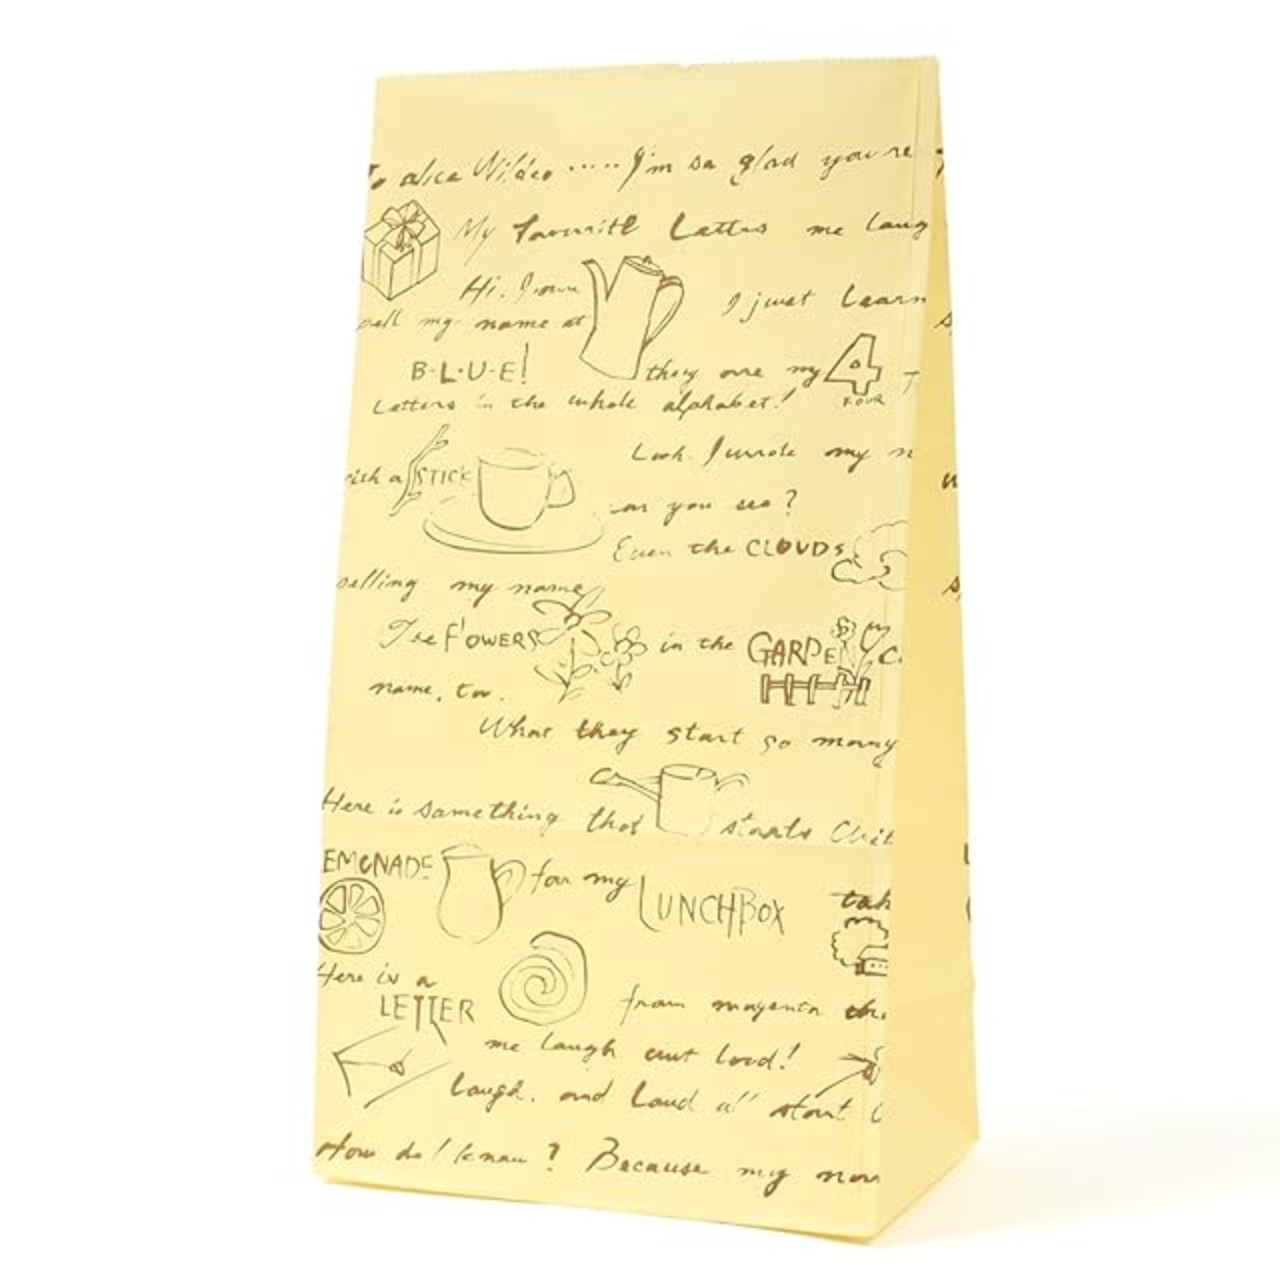 To alice Wildeo ..... I'm so glad you're
My favourite Letters me laug
Hi. I
I just Learn
my name at
B-L-U-E!
they are my 4
FOUR
Letters in the whole alphabet!
Look. I wrote my n
ith a STICK
you see?
Even the CLOUDS
pelling my name
The FlOWERS in the GARDE
name, too.
What they start so many
Here is something that starts
EMONADE for my LUNCHBOX
tak
Here is a
LETTER
from magenta
me laugh out loud!
Laugh. and Loud all start
How do I know? Because my